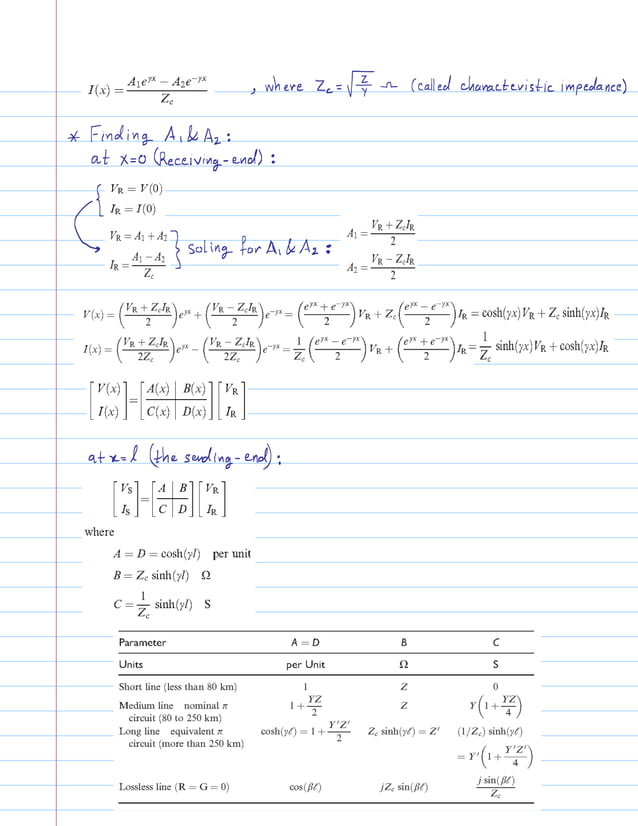 I(x) = (A₁e^{γx} − A₂e^{−γx}) / Z_c , where Z_c = √(Z/Y) Ω (called characteristic impedance)
* Finding A₁ & A₂ :
at x=0 (Receiving-end) :
V_R = V(0)
I_R = I(0)
V_R = A₁ + A₂
I_R = (A₁ − A₂) / Z_c
} soling for A₁ & A₂ :
A₁ = (V_R + Z_c I_R) / 2
A₂ = (V_R − Z_c I_R) / 2
V(x) = ((V_R + Z_c I_R)/2) e^{γx} + ((V_R − Z_c I_R)/2) e^{−γx} = ((e^{γx} + e^{−γx})/2) V_R + Z_c ((e^{γx} − e^{−γx})/2) I_R = cosh(γx)V_R + Z_c sinh(γx)I_R
I(x) = ((V_R + Z_c I_R)/2Z_c) e^{γx} − ((V_R − Z_c I_R)/2Z_c) e^{−γx} = (1/Z_c) ((e^{γx} − e^{−γx})/2) V_R + ((e^{γx} + e^{−γx})/2) I_R = (1/Z_c) sinh(γx)V_R + cosh(γx)I_R
[V(x)] = [A(x) | B(x)] [V_R]
[I(x)] [C(x) | D(x)] [I_R]
at x=l (the sending-end) :
[V_S] = [A | B] [V_R]
[I_S] [C | D] [I_R]
where
A = D = cosh(γl) per unit
B = Z_c sinh(γl) Ω
C = (1/Z_c) sinh(γl) S
Parameter A = D B C
Units per Unit Ω S
Short line (less than 80 km) 1 Z 0
Medium line nominal π circuit (80 to 250 km) 1 + YZ/2 Z Y(1 + YZ/4)
Long line equivalent π circuit (more than 250 km) cosh(γℓ) = 1 + Y′Z′/2 Z_c sinh(γℓ) = Z′ (1/Z_c) sinh(γℓ)
= Y′(1 + Y′Z′/4)
Lossless line (R = G = 0) cos(βℓ) jZ_c sin(βℓ) j sin(βℓ)/Z_c